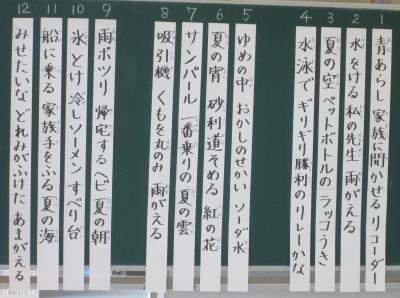 1 青あらし 家族に聞かせる リコーダー
2 水をける 私の先生 雨がえる
3 夏の空 ペットボトルの ラッコうき
4 水泳で ギリギリ勝利の リレーかな
5 ゆめの中 おかしのせかい ソーダ水
6 夏の宵 砂利道そめる 紅の花
7 サンパール 一番乗りの 夏の雲
8 吸引機 くもを丸のみ 雨がえる
9 雨ポツリ 帰宅する ヘビ 夏の朝
10 氷とけ 冷しソーメン すべり台
11 船に乗る 家族手をふる 夏の海
12 みせたいな どれみがふけた あまがえる